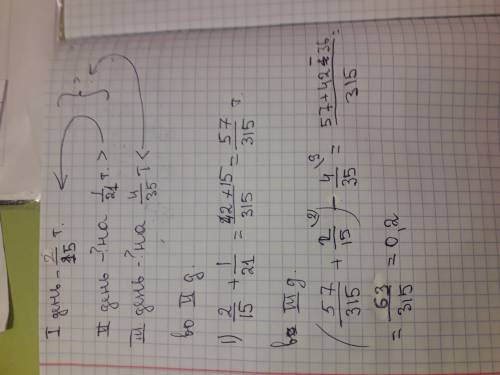 I день - 2/15 т.
II день - ? на 1/21 т. > } ?
III день - ? на 4/35 т <
во II д.
1) 2/15 + 1/21 = 42+15/315 = 57/315 т.
в III д.
( 57/315 + 2/15 ) - 4/35 = 57+42-36/315 =
= 63/315 = 0,2